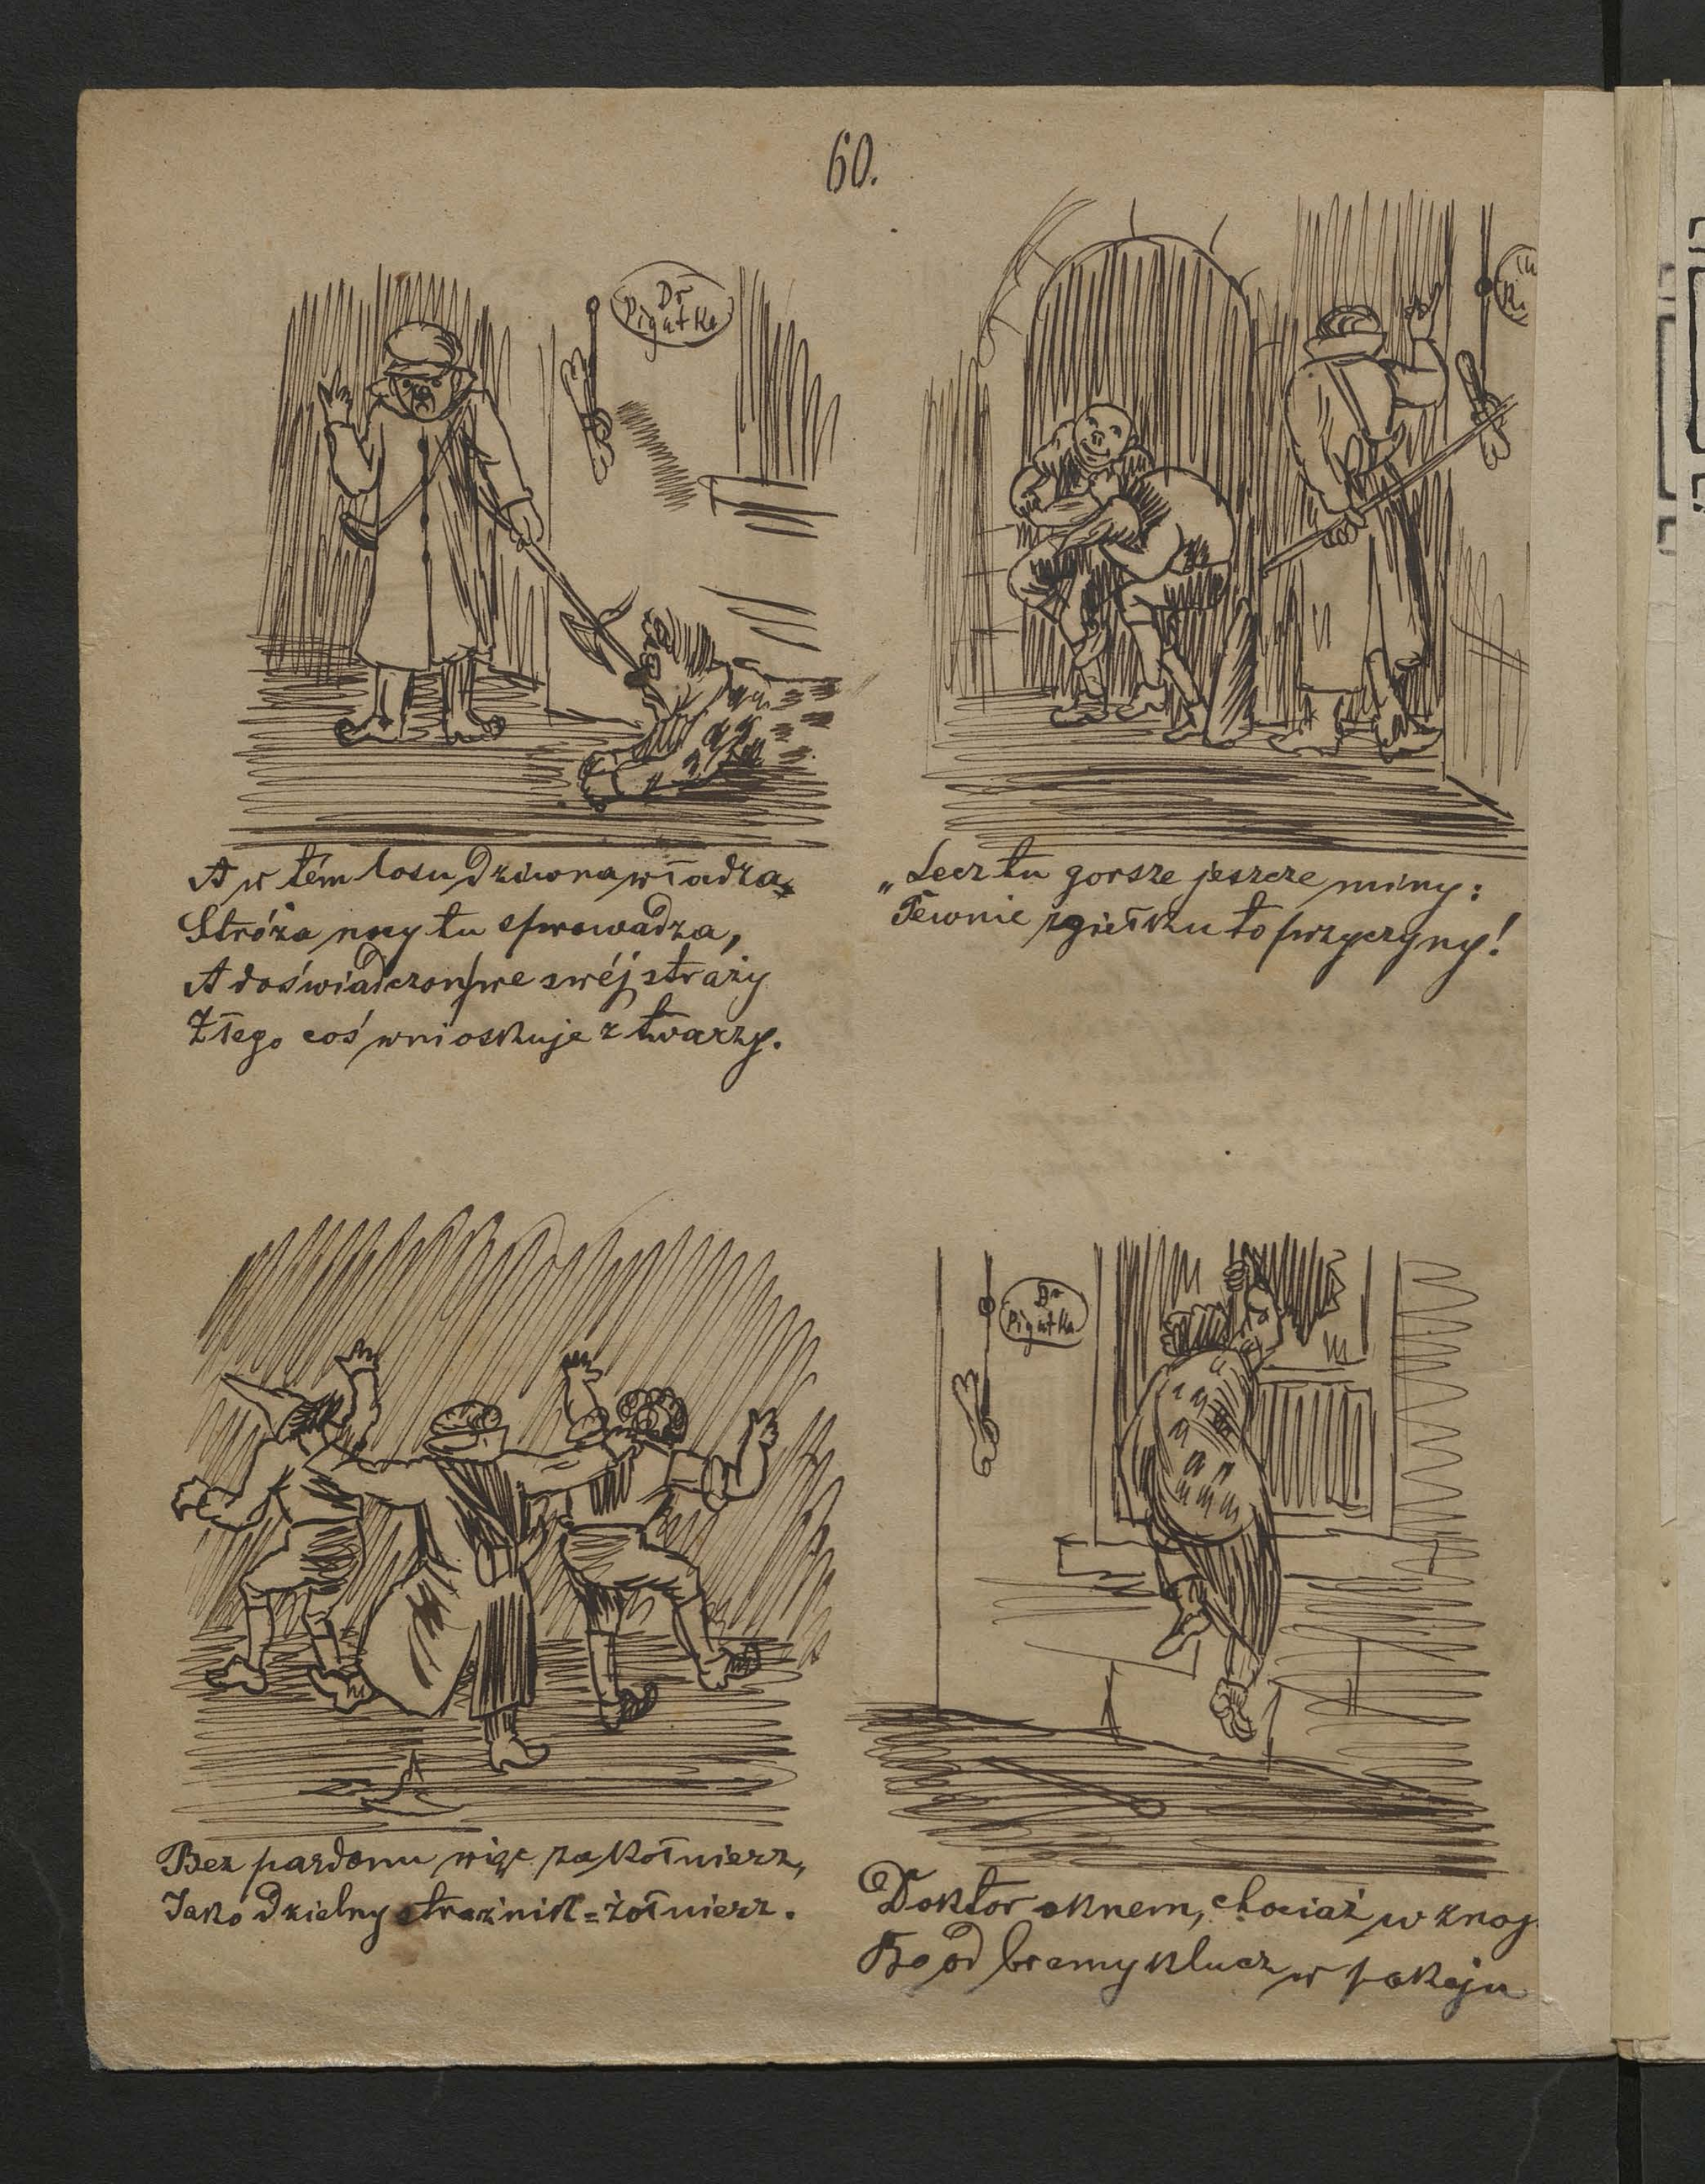 60.
Dr
Pigułka
A w tém losu dziwna władza
Stróża nocy tu sprowadza,
A doświadczon we swéj straży
Złego coś wnioskuje z twarzy.
„Lecz tu gorsze jeszcze miny:
Pewnie zgiełku to przyczyny!
Bez pardonu więc za kołnierz,
Jako dzielny strażnik=żołnierz.
Dr
Pigułka
Doktor oknem, chociaż w znoj
Bo od bramy klucz w pokoju